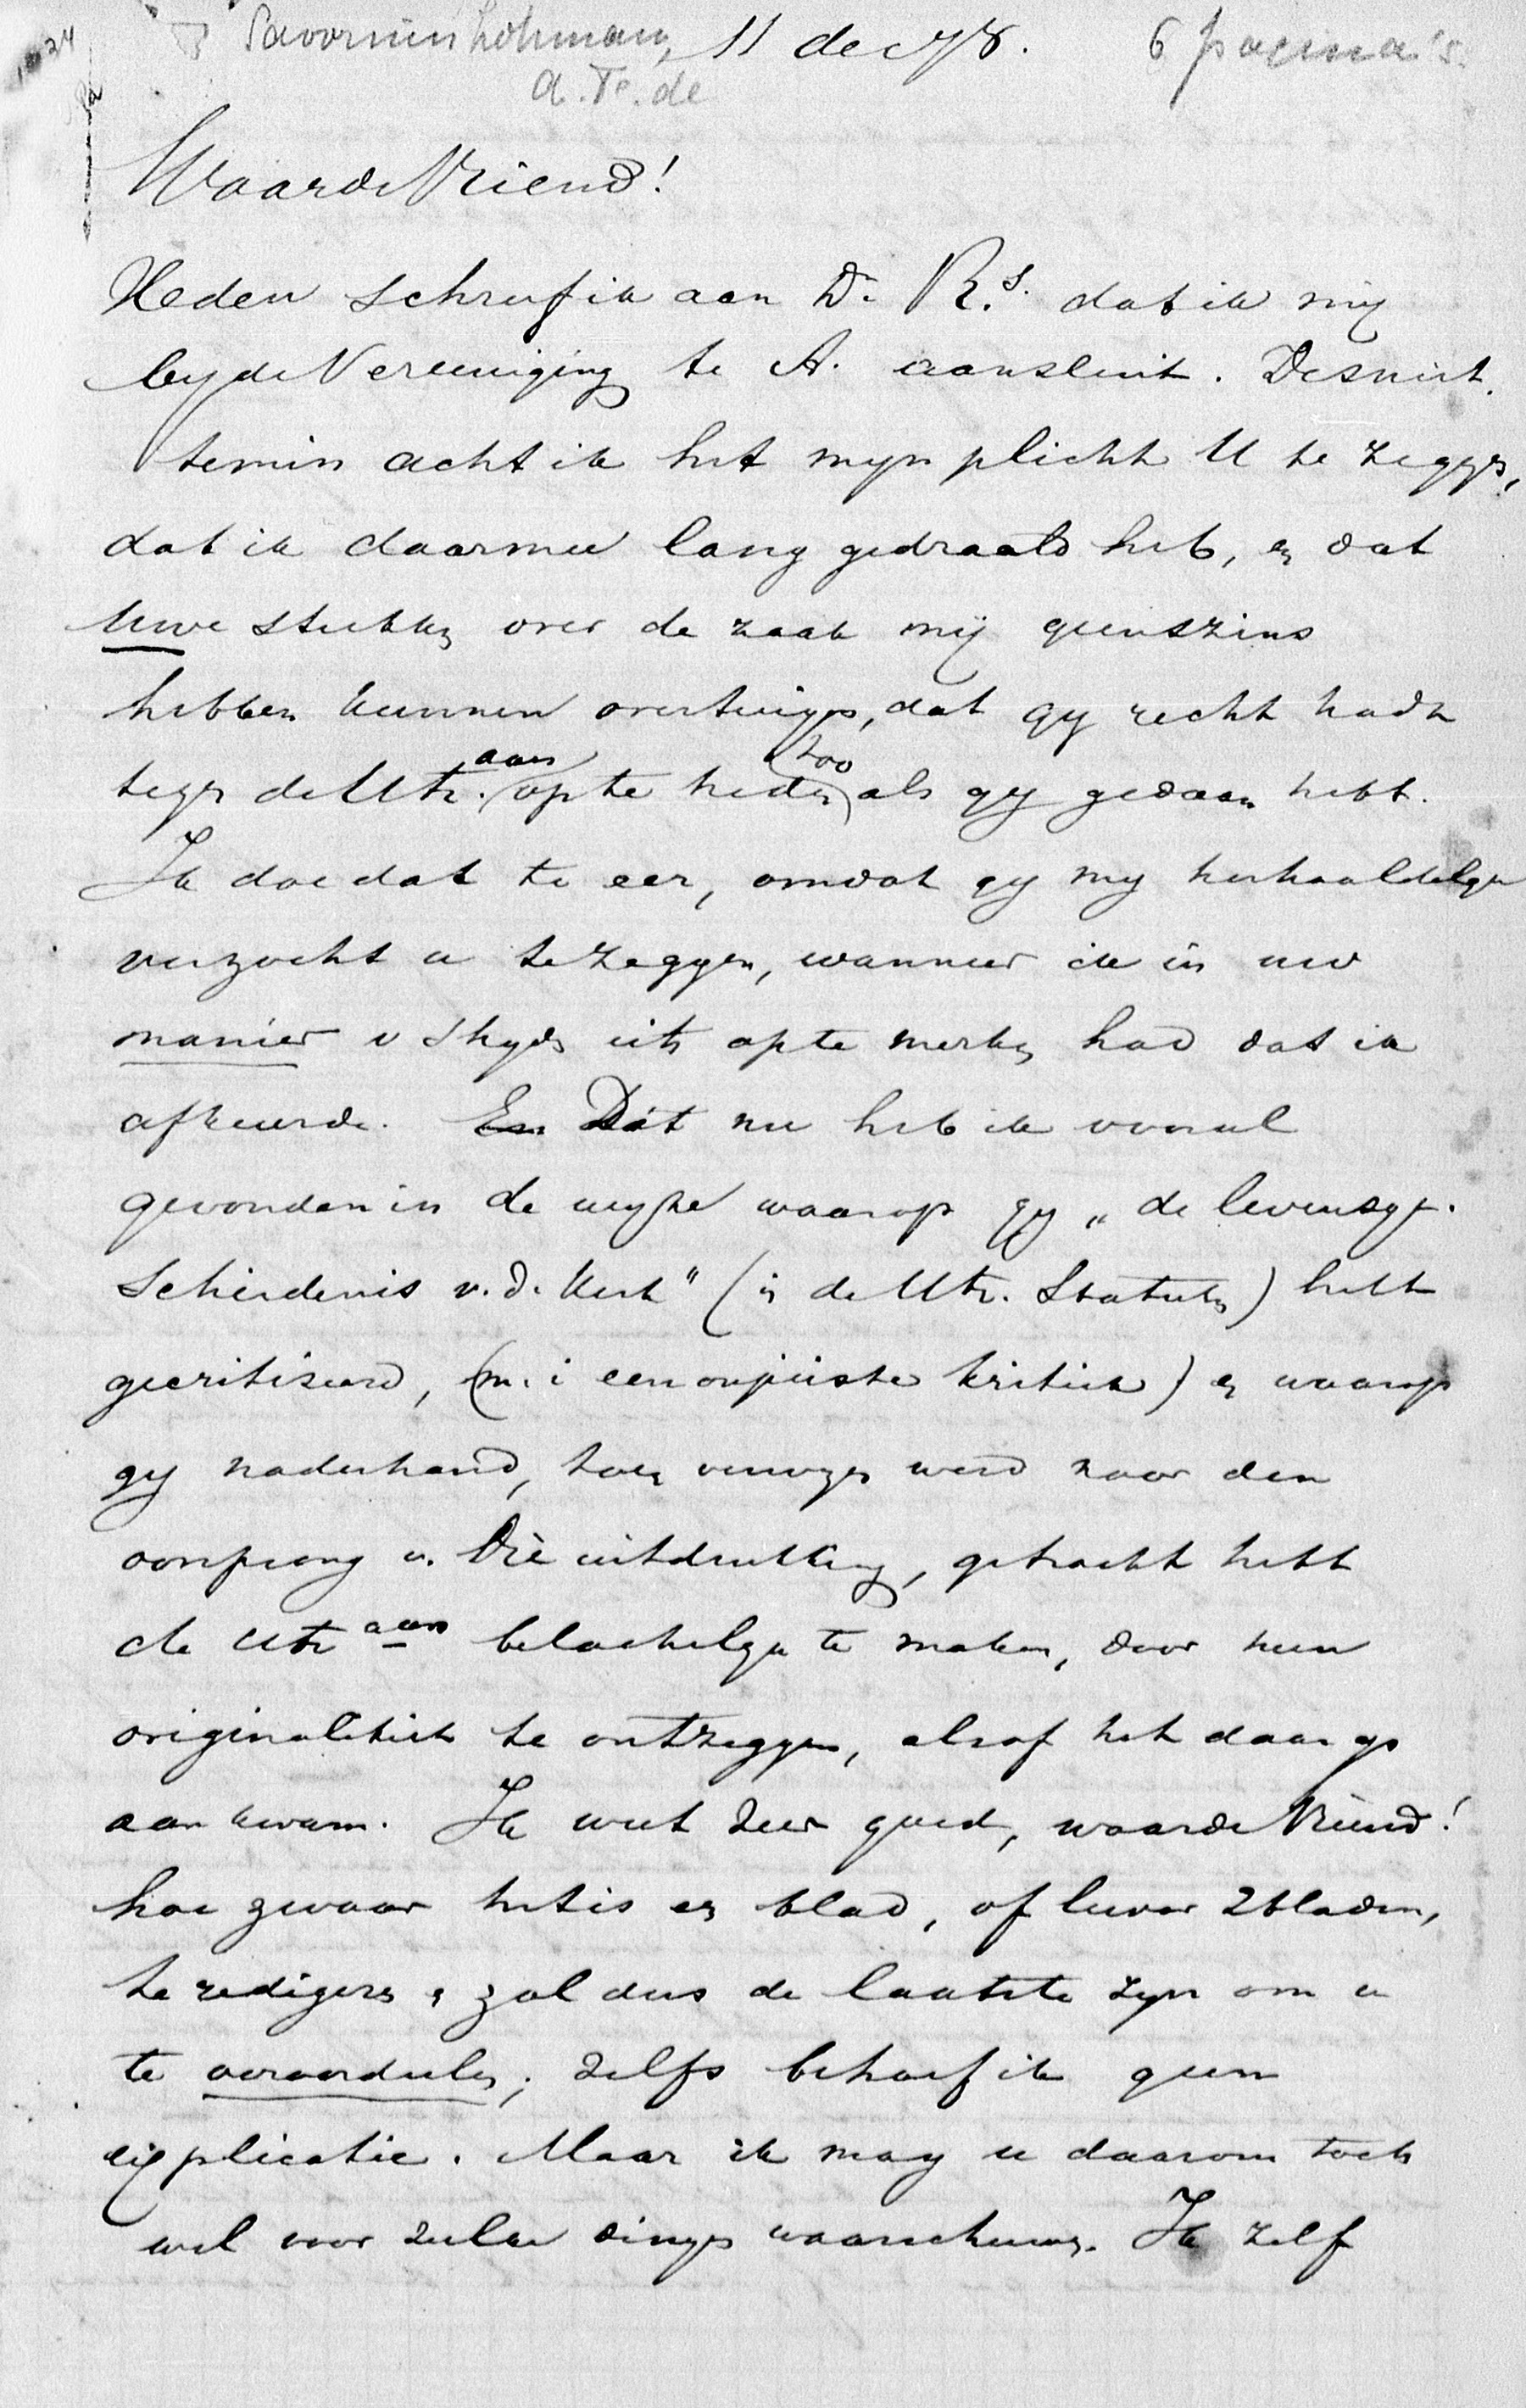 Savornin Lohman, 11 dec 78. 6 pagina's.
A. F. de
Waarde Vriend!
Heden schreef ik aan Dr R.s. dat ik mij
bij de Vereeniging te A. aansluit. Desniet
temin acht ik het mijn plicht U te zeggen,
dat ik daarmee lang gedraald heb, en dat
uwe stukken over de zaak mij geenszins
hebben kunnen overtuigen, dat gij recht hadt
tegen de Utr. aan op te treden zoo als gij gedaan hebt.
Ik doe dat te eer, omdat gij mij herhaaldelijk
verzocht u te zeggen, wanneer ik in uw
manier v strijden iets op te merken had dat ik
afkeurde. En Dát nu heb ik vooral
gevonden in de wijze waarop gij „de levensge-
schiedenis v. d. Kerk" (in de Utr. Statuten) hebt
gecritiseerd, (m. i een onjuiste kritiek) en waarop
gij naderhand, toen verwezen werd naar den
oorsprong v. die uitdrukking, getracht hebt
de Utr aan belachelijk te maken, door hun
originaliteit te ontzeggen, alsof het daarop
aan kwam. Ik weet zeer goed, waarde Vriend!
hoe zwaar het is en blad, of liever 2 bladen,
te redigeren & zal dus de laatste zijn om u
te veroordeelen; zelfs behoef ik geen
explicatie. Maar ik mag u daarom toch
wel voor zulke dingen waarschuwen. Ik zelf